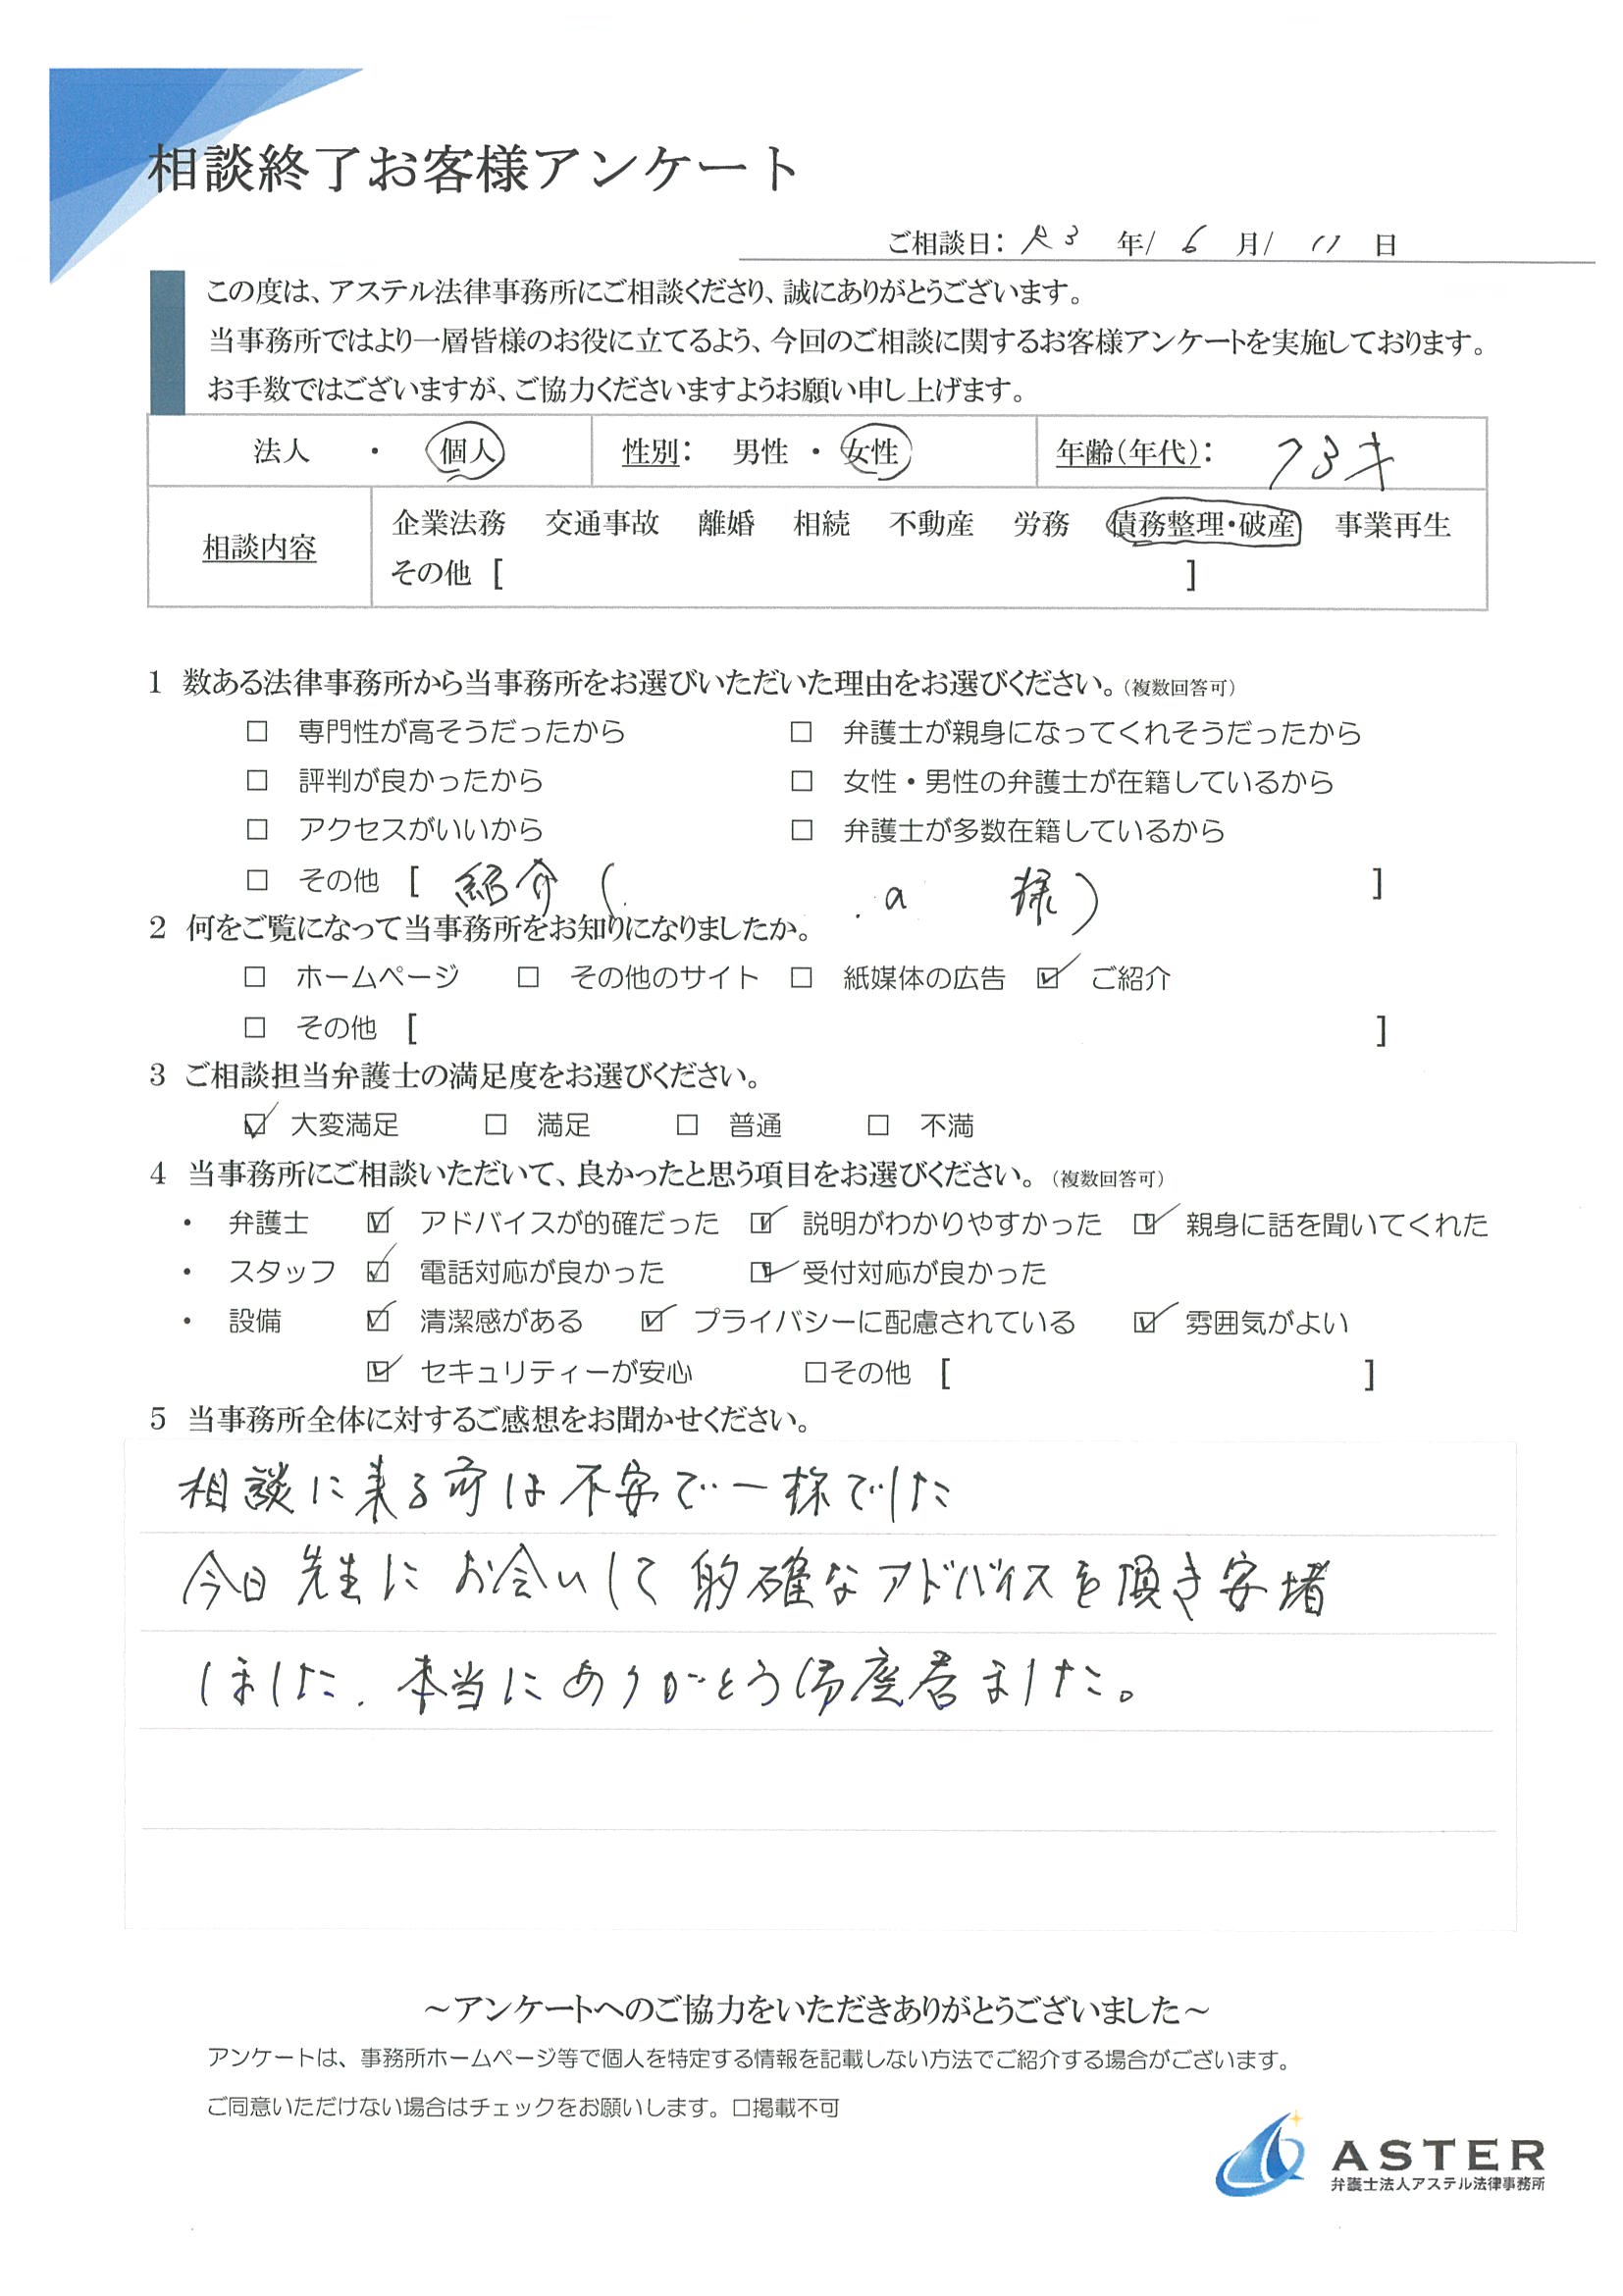 相談終了お客様アンケート
ご相談日: R3 年/ 6 月/ 11 日
この度は、アステル法律事務所にご相談くださり、誠にありがとうございます。
当事務所ではより一層皆様のお役に立てるよう、今回のご相談に関するお客様アンケートを実施しております。
お手数ではございますが、ご協力くださいますようお願い申し上げます。
法人 ・ 個人 性別: 男性 ・ 女性 年齢(年代): 73才
企業法務 交通事故 離婚 相続 不動産 労務 債務整理・破産 事業再生
相談内容
その他 [ ]
1 数ある法律事務所から当事務所をお選びいただいた理由をお選びください。(複数回答可)
□ 専門性が高そうだったから □ 弁護士が親身になってくれそうだったから
□ 評判が良かったから □ 女性・男性の弁護士が在籍しているから
□ アクセスがいいから □ 弁護士が多数在籍しているから
□ その他 [ 紹介 ( a 様) ]
2 何をご覧になって当事務所をお知りになりましたか。
□ ホームページ □ その他のサイト □ 紙媒体の広告 ☑ ご紹介
□ その他 [ ]
3 ご相談担当弁護士の満足度をお選びください。
☑ 大変満足 □ 満足 □ 普通 □ 不満
4 当事務所にご相談いただいて、良かったと思う項目をお選びください。(複数回答可)
・ 弁護士 ☑ アドバイスが的確だった ☑ 説明がわかりやすかった ☑ 親身に話を聞いてくれた
・ スタッフ ☑ 電話対応が良かった ☑ 受付対応が良かった
・ 設備 ☑ 清潔感がある ☑ プライバシーに配慮されている ☑ 雰囲気がよい
☑ セキュリティーが安心 □その他 [ ]
5 当事務所全体に対するご感想をお聞かせください。
相談に来る前は不安で一杯でした
今日先生にお会いして的確なアドバイスを頂き安堵
しました. 本当にありがとう御座居ました。
～アンケートへのご協力をいただきありがとうございました～
アンケートは、事務所ホームページ等で個人を特定する情報を記載しない方法でご紹介する場合がございます。
ご同意いただけない場合はチェックをお願いします。□掲載不可
ASTER
弁護士法人アステル法律事務所